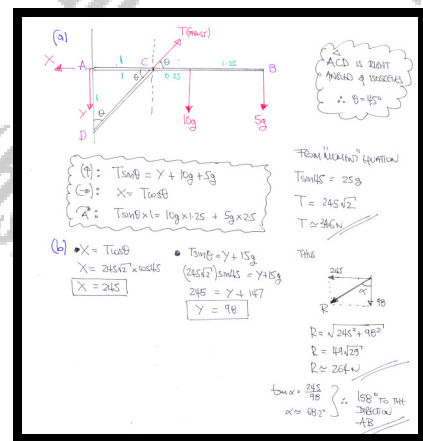 (a)
T(thrust)
X
A
1
C
1.25
B
1
0.25
θ
θ
Y
1
θ
D
10g
5g
ACD IS RIGHT
ANGLED & ISOSCELES
∴ θ=45°
(↑): Tsinθ = Y + 10g + 5g
(→): X = Tcosθ
A: Tsinθ×1 = 10g×1.25 + 5g×2.5
FROM "MOMENT" EQUATION
Tsin45 = 25g
T = 245√2
T ≃ 346N
(b)
• X = Tcosθ
X = 245√2 × cos45
X = 245
• Tsinθ = Y + 15g
(245√2)sin45 = Y + 15g
245 = Y + 147
Y = 98
THUS
245
α
98
R
R = √245² + 98²
R = 49√29
R ≃ 264N
tanα = 245/98
α ≈ 68.2°
∴ 158° TO THE
DIRECTION
AB